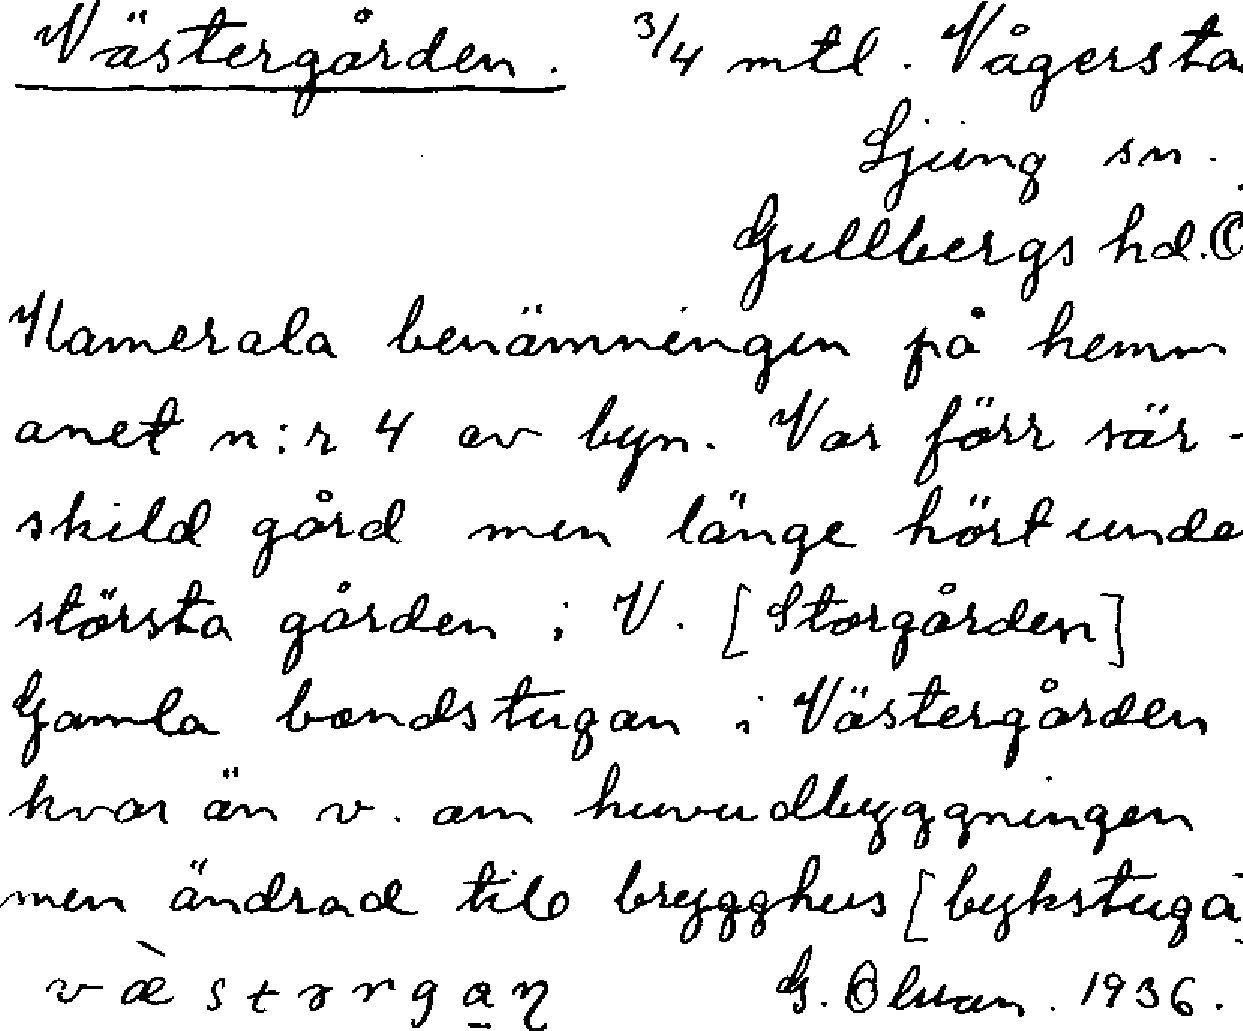 Västergården. 3/4 mtl. Vågersta
Ljung sn.
Gullbergs hd. Ö
Kamerala benämningen på hemm
anet n:r 4 av byn. Var förr sär-
skild gård men länge hört unde
största gården i V. [Storgården]
Gamla bondstugan i Västergården
kvar än v. om huvudbyggningen
men ändrad till brygghus [bykstuga]
G. Olsson. 1936.